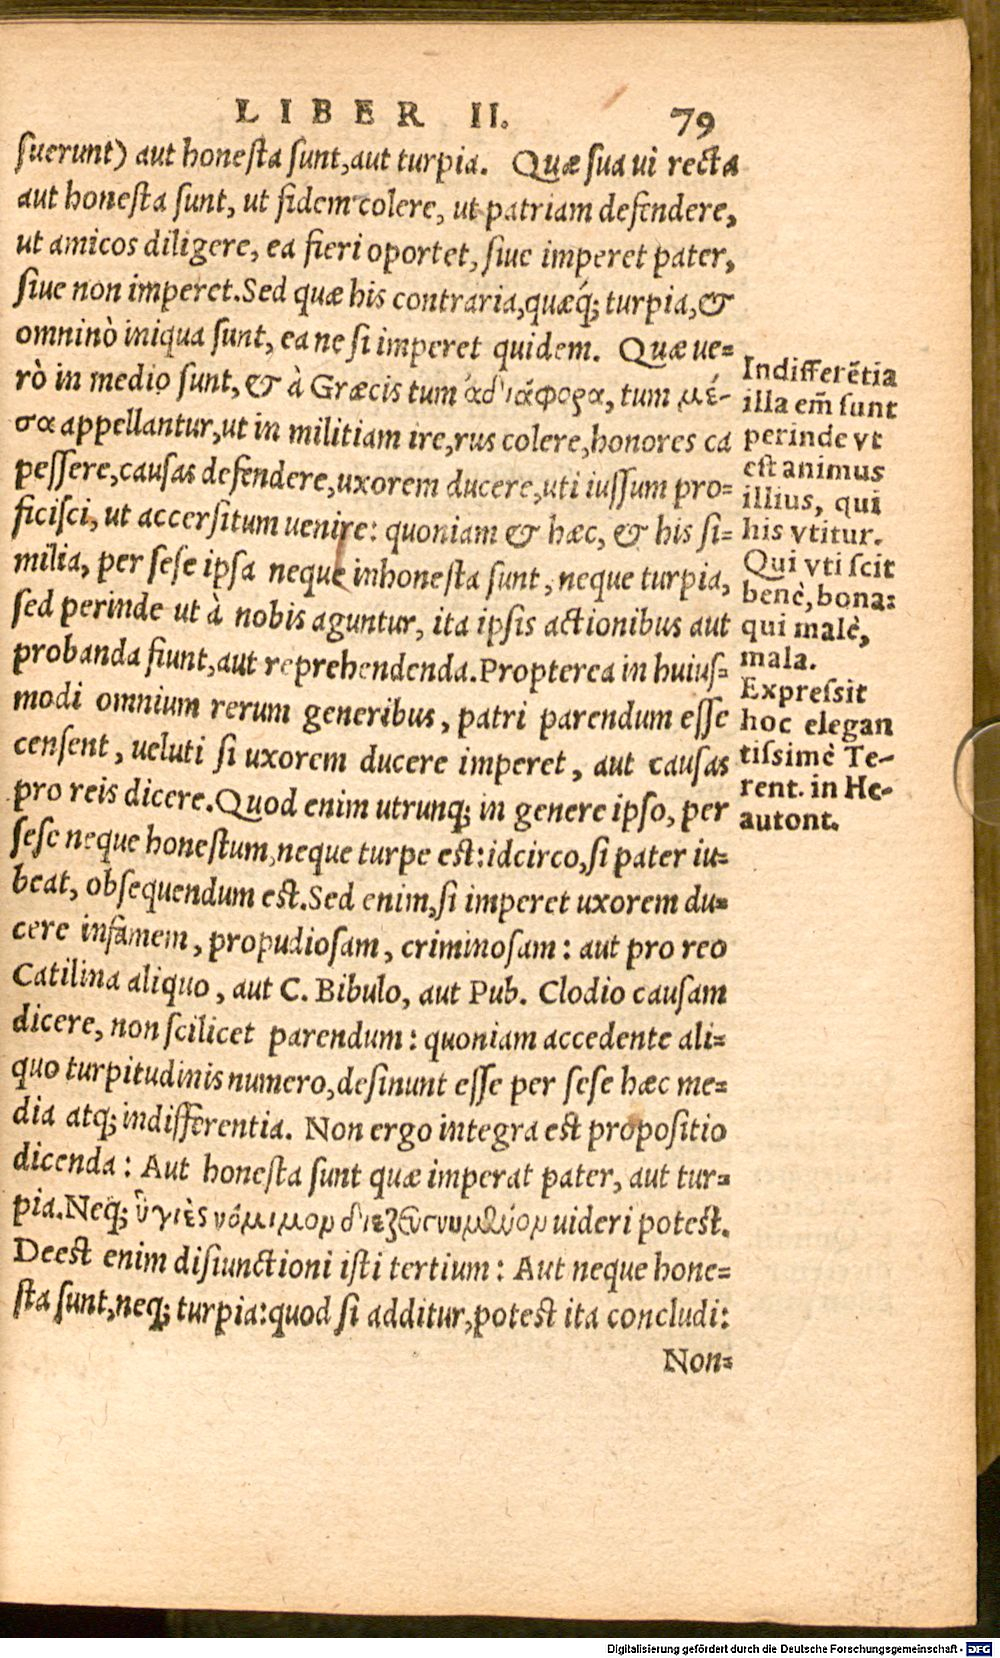 LIBER II. 79
ſuerunt) aut honeſta ſunt, aut turpia. Quæ ſua ui recta
aut honeſta ſunt, ut fidem colere, ut patriam defendere,
ut amicos diligere, ea fieri oportet, ſiue imperet pater,
ſiue non imperet. Sed quæ his contraria, quæq́; turpia, &
omninò iniqua ſunt, ea ne ſi imperet quidem. Quæ ue=
rò in medio ſunt, & à Græcis tum ἀδιάφορα, tum μέ-
σα appellantur, ut in militiam ire, rus colere, honores ca
peſſere, cauſas defendere, uxorem ducere, uti iuſſum pro=
ficiſci, ut accerſitum uenire: quoniam & hæc, & his ſi=
milia, per ſeſe ipſa neque inhoneſta ſunt, neque turpia,
ſed perinde ut à nobis aguntur, ita ipſis actionibus aut
probanda fiunt, aut reprehendenda. Propterea in huiuſ=
modi omnium rerum generibus, patri parendum eſſe
cenſent, ueluti ſi uxorem ducere imperet, aut cauſas
pro reis dicere. Quod enim utrunq; in genere ipſo, per
ſeſe neque honeſtum, neque turpe eſt: idcirco, ſi pater iu=
beat, obſequendum eſt. Sed enim, ſi imperet uxorem du=
cere infamem, propudioſam, criminoſam: aut pro reo
Catilina aliquo, aut C. Bibulo, aut Pub. Clodio cauſam
dicere, non ſcilicet parendum: quoniam accedente ali=
quo turpitudinis numero, deſinunt eſſe per ſeſe hæc me=
dia atq; indifferentia. Non ergo integra eſt propoſitio
dicenda: Aut honeſta ſunt quæ imperat pater, aut tur=
pia. Neq; ὑγιὲς νόμιμον διεζευγνυμένον uideri poteſt.
Deeſt enim diſiunctioni iſti tertium: Aut neque hone=
ſta ſunt, neq; turpia: quod ſi additur, poteſt ita concludi:
Non=
Indifferẽtia
illa em̃ ſunt
perinde vt
eſt animus
illius, qui
his vtitur.
Qui vti ſcit
benè, bona:
qui malè,
mala.
Expreſsit
hoc elegan
tiſsimè Te-
rent. in He-
autont.
Digitalisierung gefördert durch die Deutsche Forschungsgemeinschaft - DFG